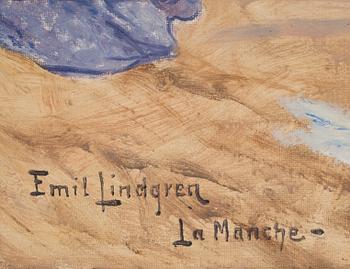 Emil Lindgren
La Manche-